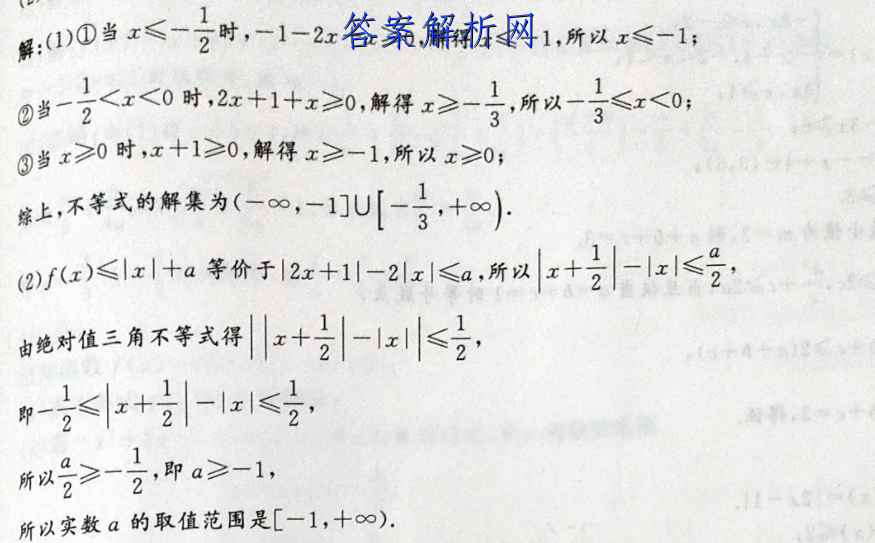 解:(1)①当 x≤-1/2 时,-1-2x 答案解析网 -1,所以 x≤-1;
②当-1/2<x<0 时,2x+1+x≥0,解得 x≥-1/3,所以-1/3≤x<0;
③当 x≥0 时,x+1≥0,解得 x≥-1,所以 x≥0;
综上,不等式的解集为(-∞,-1]∪[-1/3,+∞).
(2)f(x)≤|x|+a 等价于|2x+1|-2|x|≤a,所以|x+1/2|-|x|≤a/2,
由绝对值三角不等式得||x+1/2|-|x||≤1/2,
即-1/2≤|x+1/2|-|x|≤1/2,
所以a/2≥-1/2,即 a≥-1,
所以实数 a 的取值范围是[-1,+∞).